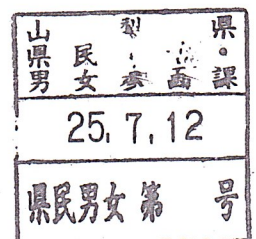 山梨県
県民・
男女参画課
25.7.12
県民男女第 号